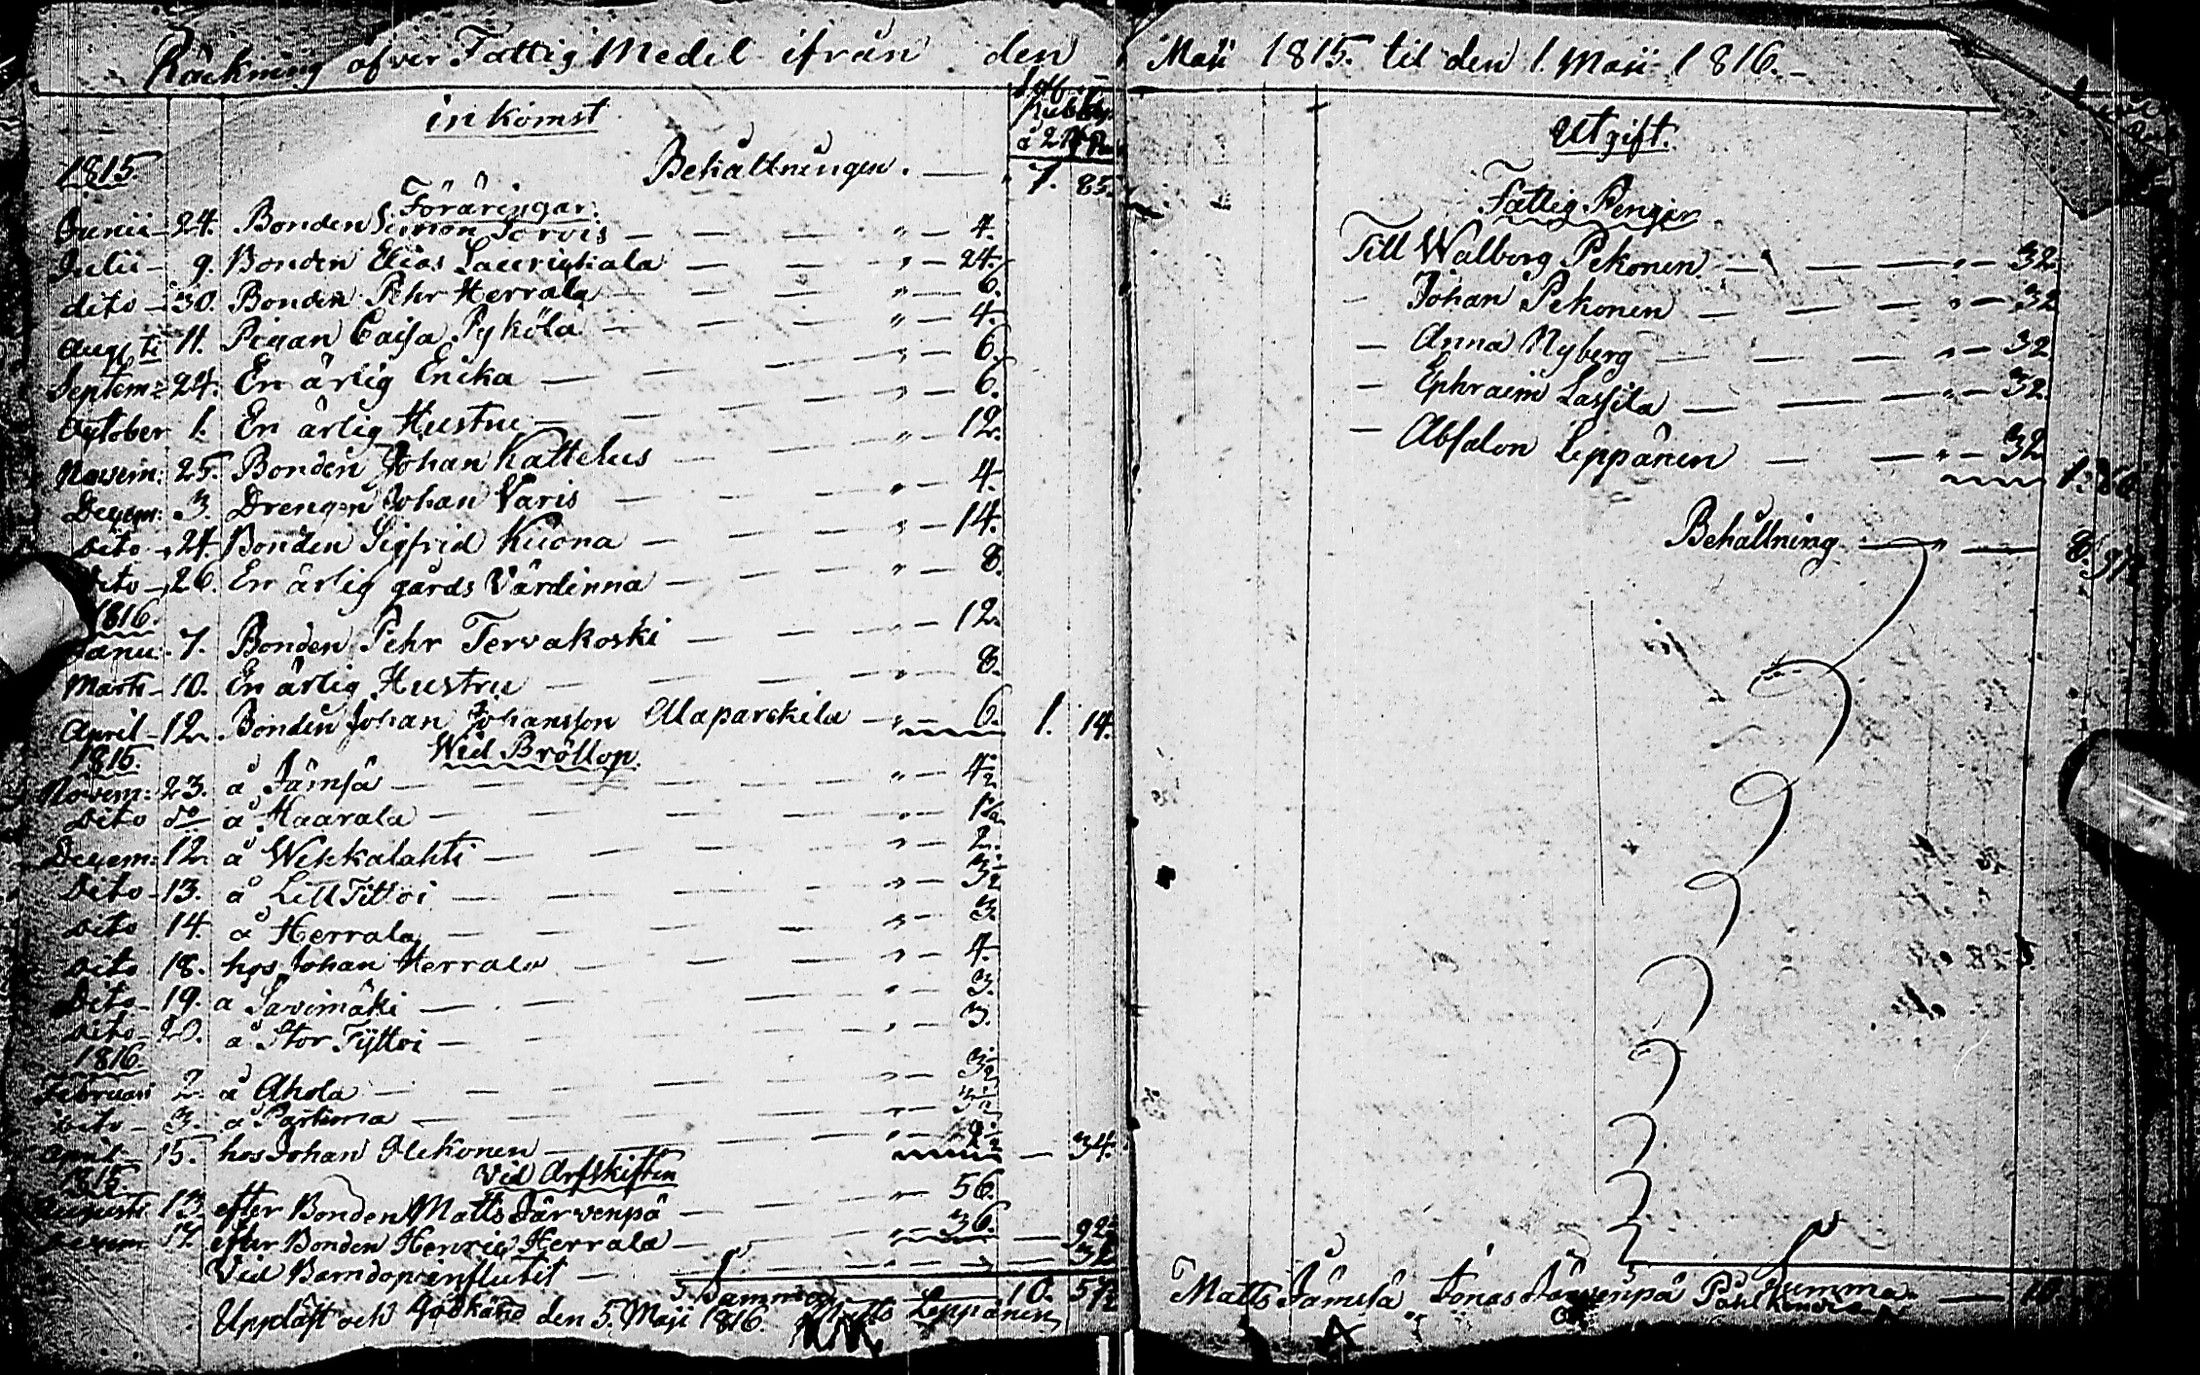 Räckning öfver Fattig Medel ifrån den 1 Maji 1815. til den 1. Maji 1816.
inkomst
1815.
Behållningen. — 7. 85.
Föräringar.
Junii - 24. Bonden Simon Torvis — " — 4.
Julii - 9. Bonden Elias Laurikkala — " — 24.
dito - 30. Bonden Pehr Herrala — " — 6.
Augusti 11. Pigan Caisa Pyhöla — " — 4.
Septem: 24. En ärlig Enka — " — 6.
October 1. En ärlig Hustru — " — 6.
Novem: 25. Bonden Johan Kattelus — " — 12.
Decem: 3. Drengen Johan Varis — " — 4.
dito - 24. Bonden Sigfrid Kuona — " — 14.
dito - 26. En ärlig gårds Värdinna — " — 8.
1816.
Janu: 7. Bonden Pehr Tervakoski — " — 12.
Marti - 10. En ärlig Hustru — " — 8.
April - 12. Bonden Johan Johansson Alaparskila — " — 6. 1. 14.
1815. Wid Bröllop.
Novem: 23. å Jämsä — " — 4½
Dito do å Haarala — " — 1½
Decem: 12. å Wekkalahti — " — 2.
Dito - 13. å Lill Tittoi — " — 3½
Dito 14. å Herrala — " — 3.
Dito 18. hos Johan Herrala — " — 4.
Dito - 19. å Savimäki — " — 3.
Dito - 20. å Stor Tyttoi — " — 3.
1816.
Februari 2. å Ahola — " — 3½
Dito - 3. å — " — 3½
April - 15. hos Johan Pekonen — " — 2½ — 34.
1815. Vid Arfskiften
Augusti 13. efter Bonden Matts Järvenpä — " — 56.
Decem 17. efter Bonden Henric Herrala — " — 36. — 92.
Vid Barndop influtit — 32
Summa — 10. 57½
Uppläst och Godkänd den 5. Maji 1816. Matts Leppänen
Utgift.
Fattig Penger
Till Walborg Pekonen — " — 32.
— Johan Pekonen — " — 32
— Anna Nyberg — " — 32
— Ephraim Lassila — " — 32.
— Absalon Leppänen — " — 32 1. 60
Behållning — " — 8. 97½
Summa — 10
Matts Jämsä Jonas Järvenpä